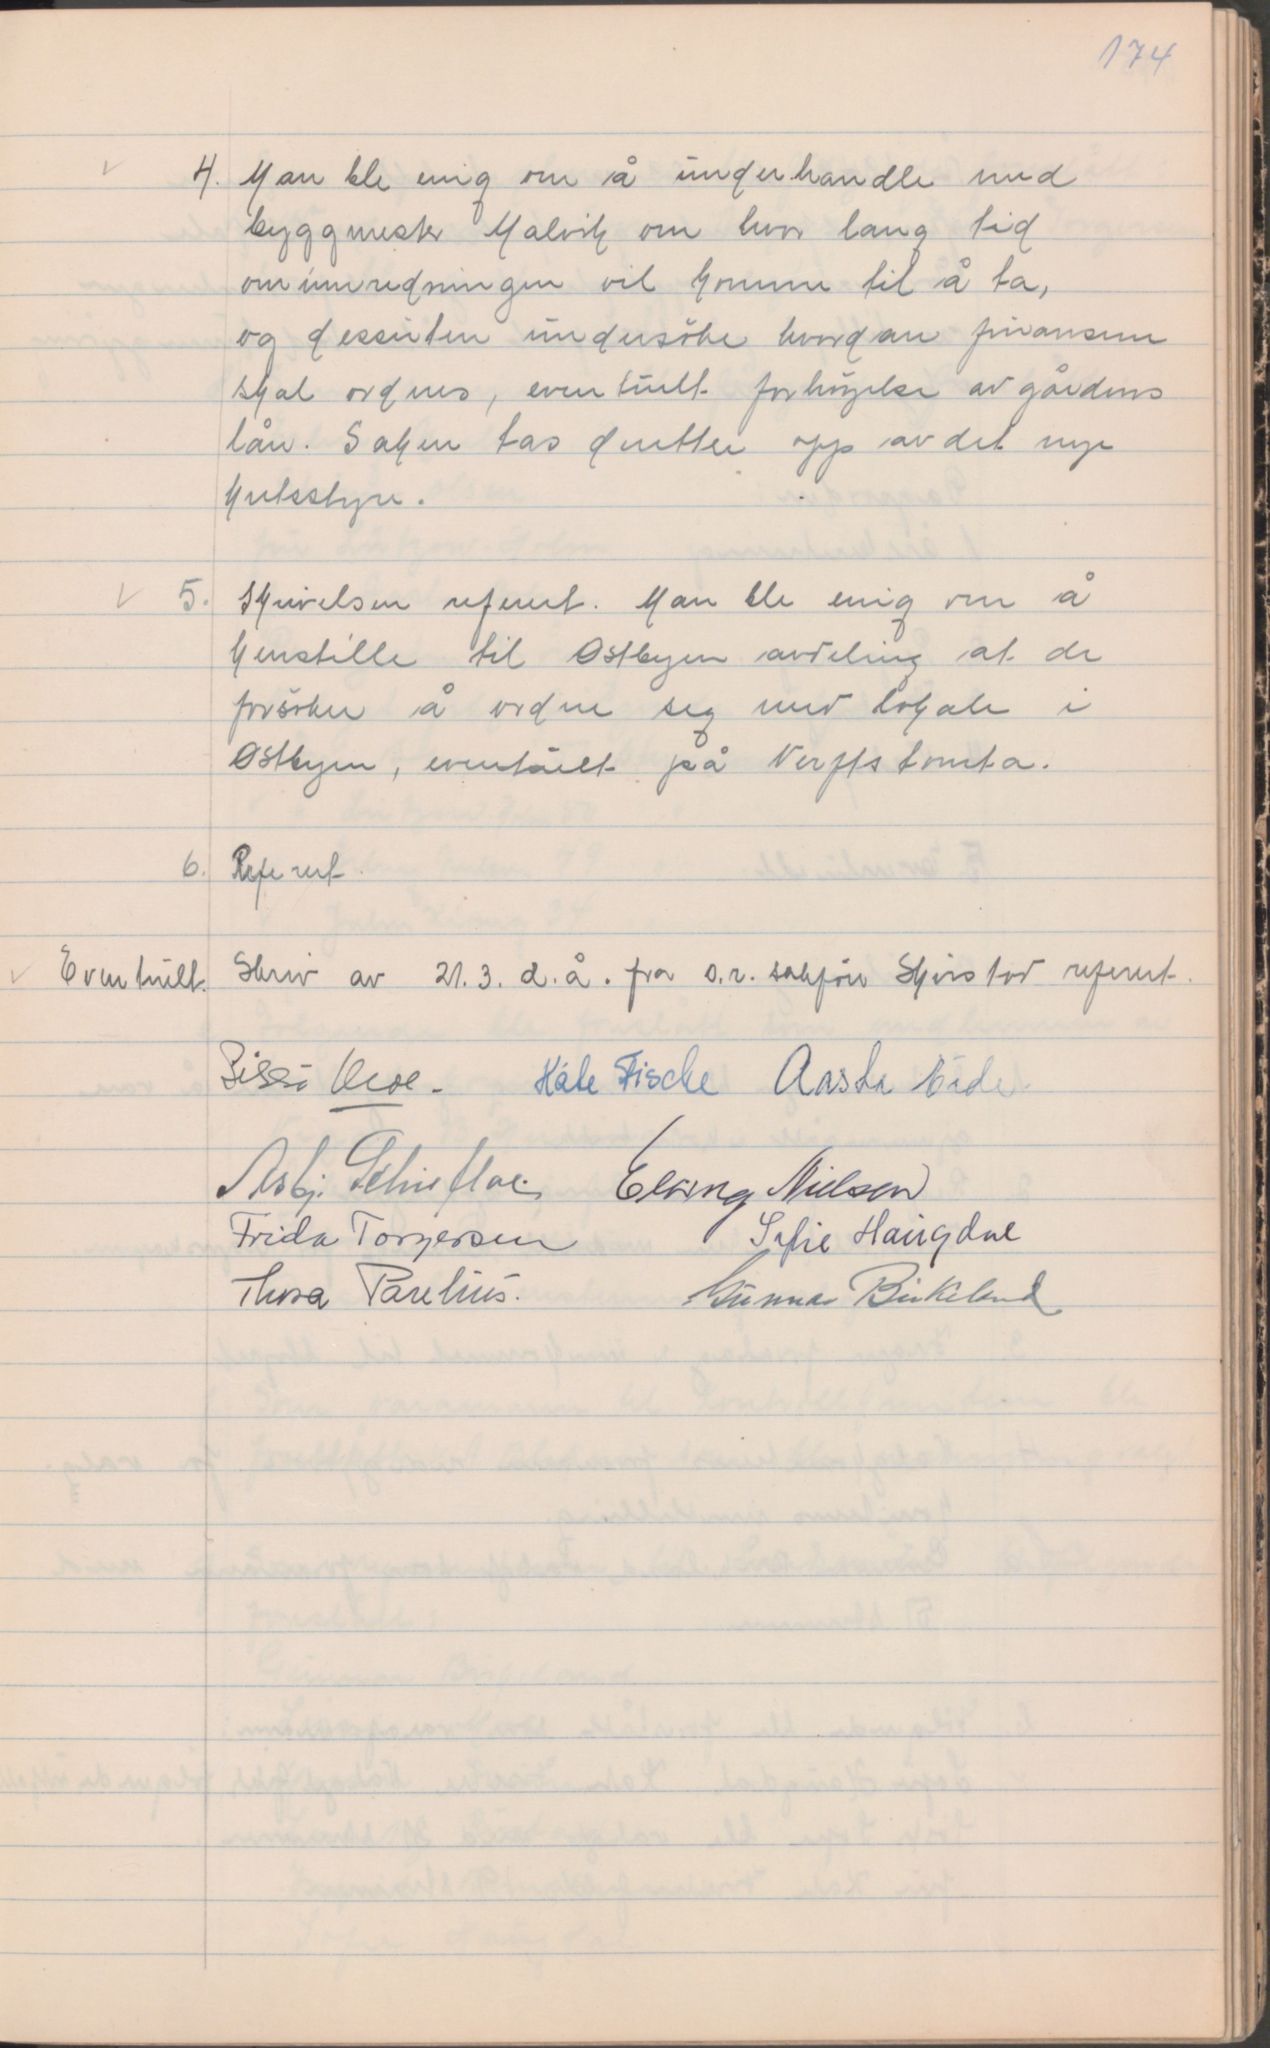 174
4. Man ble enig om å underhandle med
byggmester Malvik om hvor lang tid
ominnredningen vil komme til å ta,
og dessuten undersöke hvordan finansene
skal ordnes, eventuelt forhöyelse av gårdens
lån. Saken tas deretter opp av det nye
kretsstyre.
5. Skrivelsen referert. Man ble enig om å
henstille til Østbyen avdeling at de
forsöker å ordne seg med lokale i
Østbyen, eventuelt på Verftstomta.
6. Referert.
Eventuelt. Skriv av 21.3. d.å. fra o.r. sakför Skirstad referert.
Käte Fische Aasta Eide
Asbj. Elsing Nielsen
Frida Torgersen Sofie Haugdal
Thora Parelius. Gunnar Birkeland